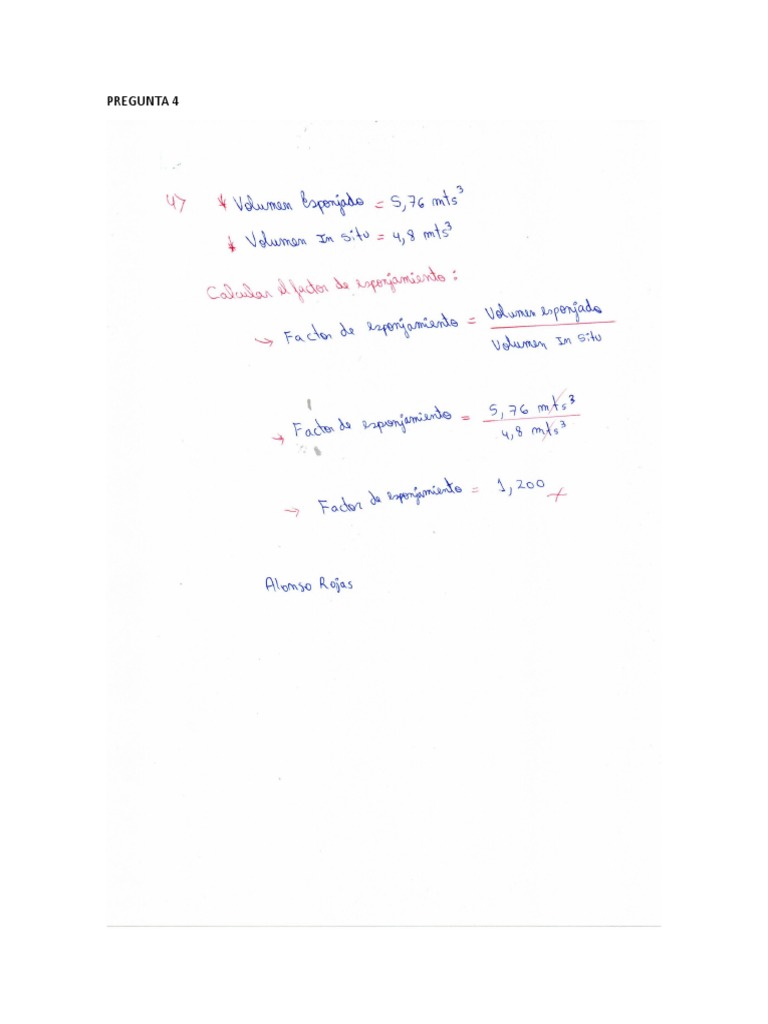 PREGUNTA 4
4) * Volumen Esponjado = 5,76 mts³
* Volumen In Situ = 4,8 mts³
Calcular el factor de esponjamiento:
→ Factor de esponjamiento = Volumen esponjado
Volumen In Situ
→ Factor de esponjamiento = 5,76 mts³
4,8 mts³
→ Factor de esponjamiento = 1,200
Alonso Rojas